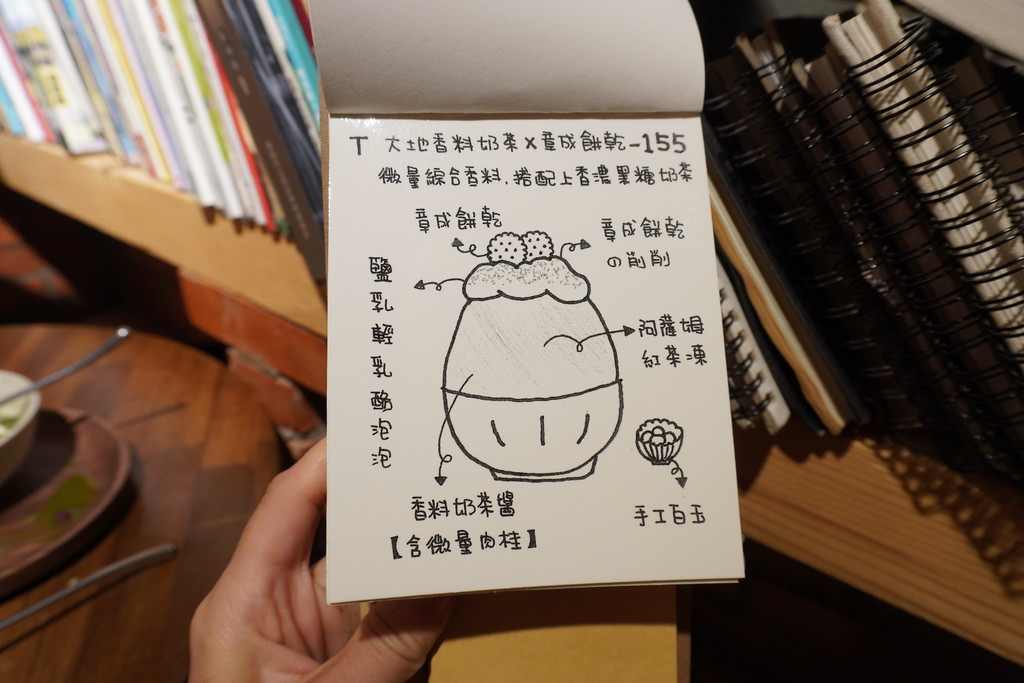 T 大地香料奶茶x意成餅乾-155
微量綜合香料,搭配上香濃黑糖奶茶
意成餅乾
意成餅乾
の削削
鹽乳輕乳酪泡泡
阿薩姆
紅茶凍
香料奶茶醬
【含微量肉桂】
手工白玉